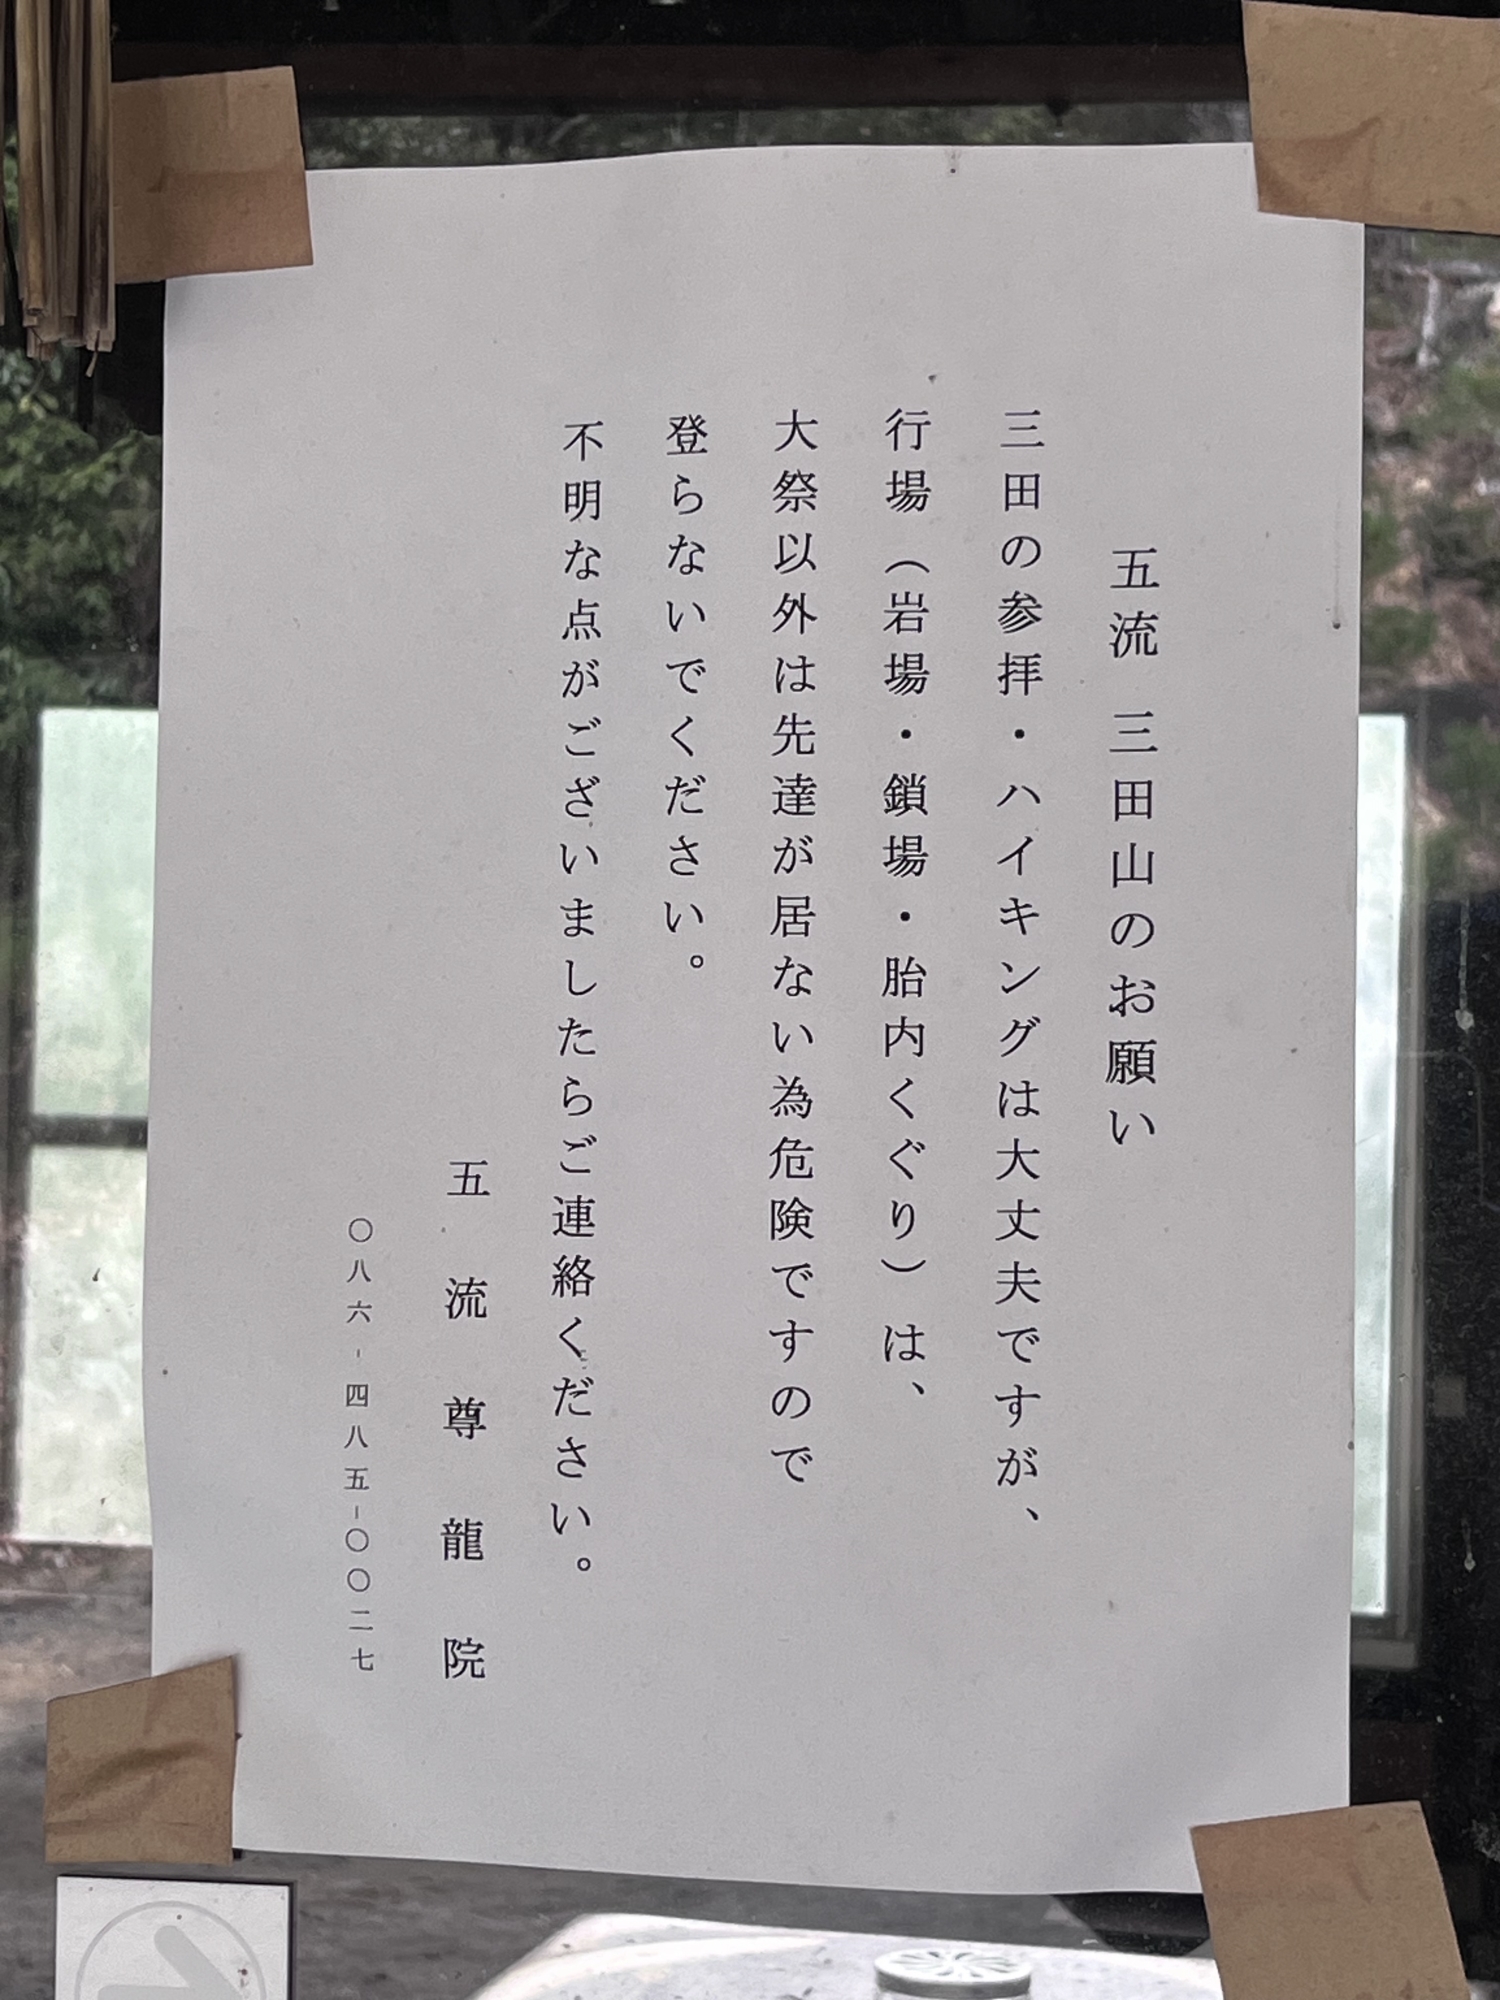 五流 三田山のお願い
三田の参拝・ハイキングは大丈夫ですが、
行場（岩場・鎖場・胎内くぐり）は、
大祭以外は先達が居ない為危険ですので
登らないでください。
不明な点がございましたらご連絡ください。
五流尊龍院
〇八六-四八五-〇〇二七